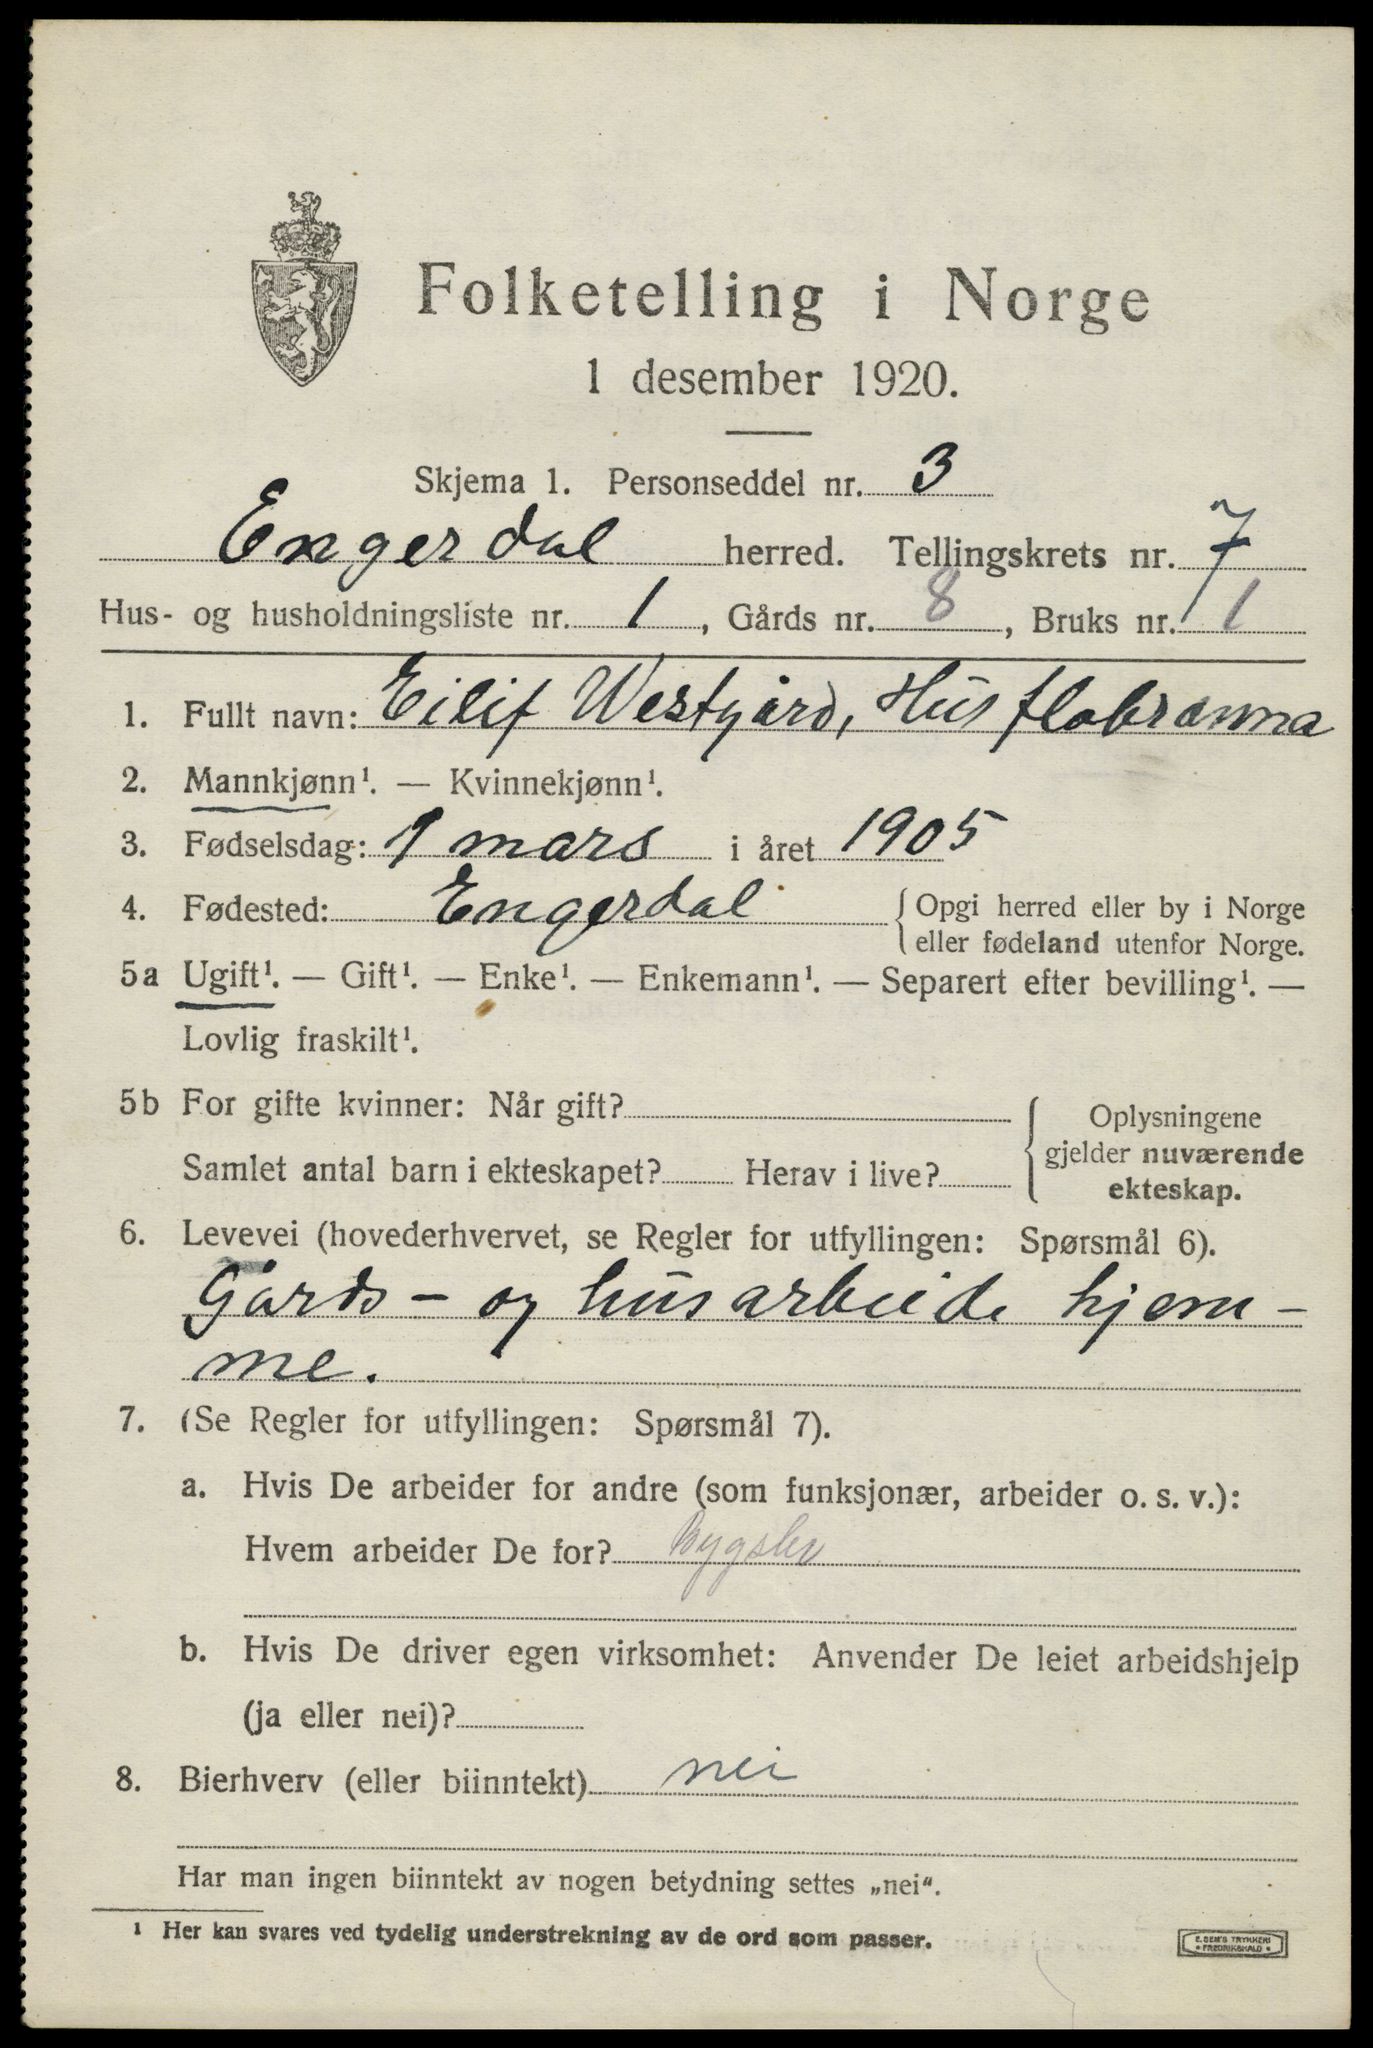 Folketelling i Norge
1 desember 1920.
Skjema 1. Personseddel nr. 3
Engerdal herred. Tellingskrets nr. 7
Hus- og husholdningsliste nr. 1, Gårds nr. 8, Bruks nr. 1
1. Fullt navn: Eilif Westgård, Husflobrænna
2. Mannkjønn¹. — Kvinnekjønn¹.
3. Fødselsdag: 1 mars i året 1905
4. Fødested: Engerdal { Opgi herred eller by i Norge
eller fødeland utenfor Norge.
5a Ugift¹. — Gift¹. — Enke¹. — Enkemann¹. — Separert efter bevilling¹. —
Lovlig fraskilt¹.
5b For gifte kvinner: Når gift? { Oplysningene
gjelder nuværende
Samlet antal barn i ekteskapet? Herav i live?
ekteskap.
6. Levevei (hovederhvervet, se Regler for utfyllingen: Spørsmål 6).
Gårds- og husarbeide hjem-
me.
7. (Se Regler for utfyllingen: Spørsmål 7).
a. Hvis De arbeider for andre (som funksjonær, arbeider o. s. v.):
Hvem arbeider De for?
b. Hvis De driver egen virksomhet: Anvender De leiet arbeidshjelp
(ja eller nei)?
8. Bierhverv (eller biinntekt) nei
Har man ingen biinntekt av nogen betydning settes „nei".
¹ Her kan svares ved tydelig understrekning av de ord som passer.
E. SEM'S TRYKKERI
• FREDRIKSHALD •